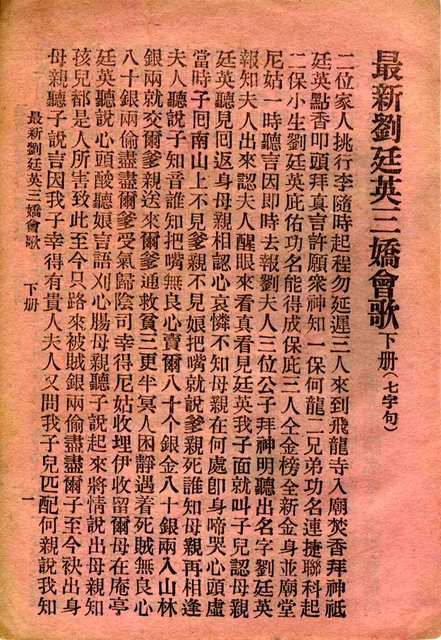 最新劉廷英三嬌會歌 下册 (七字句)
二位家人挑行李隨時起程勿延遲三人來到飛龍寺入廟焚香拜神祗
廷英點香叩頭拜真言許願衆神知一保何龍二兄弟功名連捷聯科起
二保小生劉廷英庇佑功名能得成保庇三人仝金榜全新金身並廟堂
尼姑一時聽言因即時去報劉夫人三位公子拜神明聽出名字劉廷英
報知夫人出來認夫人醒眼來看真看見廷英我子面就叫子兒認母親
廷英聽見回返身母親相認心哀憐不知母親在何處卽身啼哭心頭虛
當時子回南山上不見爹親不見娘把嘴就說爹親死誰知母親再相逢
夫人聽說子知音誰知把嘴無良心賣爾八十個銀金八十銀兩入山林
銀兩就交爾爹親送來爾爹通救貧三更半冥人困靜遇着死賊無良心
八十銀兩偷盡盡爾爹受氣歸陰司幸得尼姑收埋伊收留爾母在庵亭
廷英聽說心頭酸聽娘言語刈心腸母親聽子說起來將情說出母親知
孩兒都是人所害致此至今只路來被賊銀兩偷盡盡爾子至今袂出身
母親聽子說言因我子幸得有貴人夫人又問我子兒匹配何親說我知
最新劉廷英三嬌會歌 下册 一